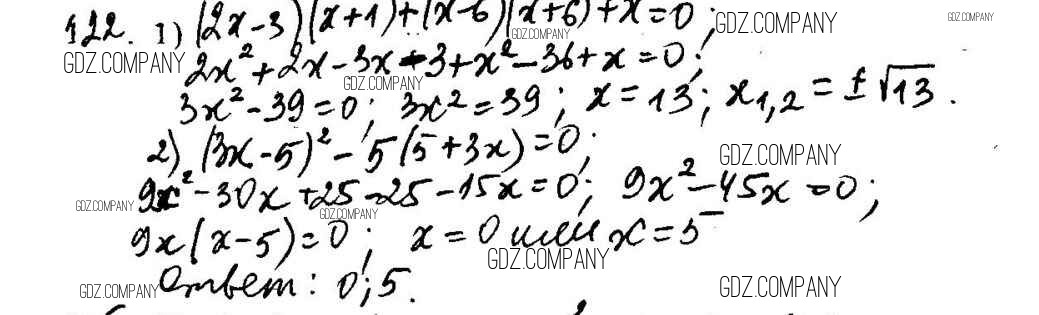 122. 1) (2x-3)(x+1)+(x-6)(x+6)+x=0;
GDZ.COMPANY
GDZ.COMPANY
GDZ.COMPANY
GDZ.COMPANY
2x²+2x-3x-3+x²-36+x=0;
GDZ.COMPANY
3x²-39=0; 3x²=39; x=13; x1,2=±√13.
2) (3x-5)²-5(5+3x)=0;
GDZ.COMPANY
9x²-30x+25-25-15x=0; 9x²-45x=0;
GDZ.COMPANY
GDZ.COMPANY
9x(x-5)=0; x=0 или x=5
GDZ.COMPANY
Ответ: 0; 5.
GDZ.COMPANY
GDZ.COMPANY